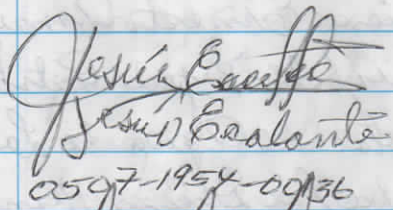 Jesús Escalante
Jesús Escalante
0597-1954-00136